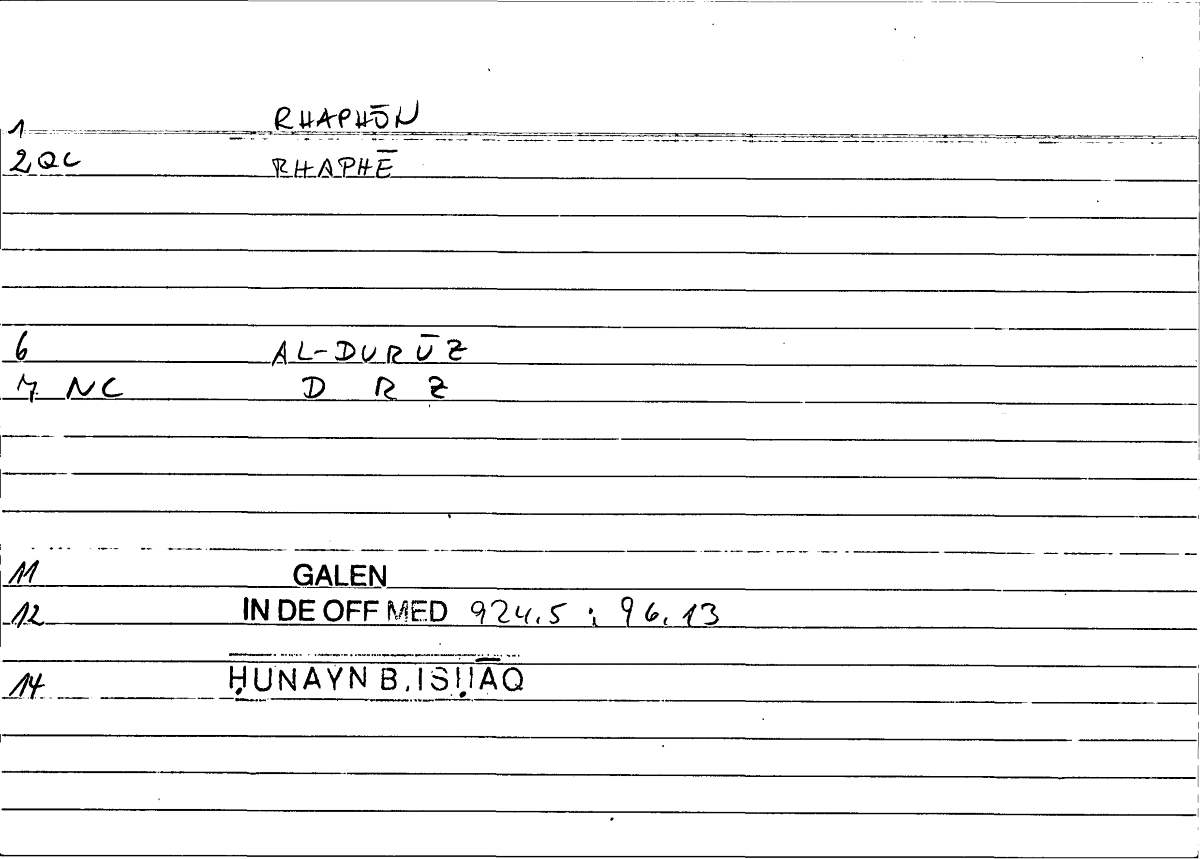 1 RHAPHŌN
2 QC RHAPHĒ
6 AL-DURŪZ
7 NC D R Z
11 GALEN
12 IN DE OFF MED 924.5 ; 96.13
14 ḤUNAYN B. ISḤĀQ